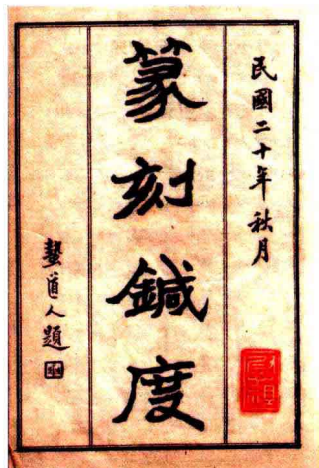 民國二十年秋月
篆刻鍼度
螯道人題